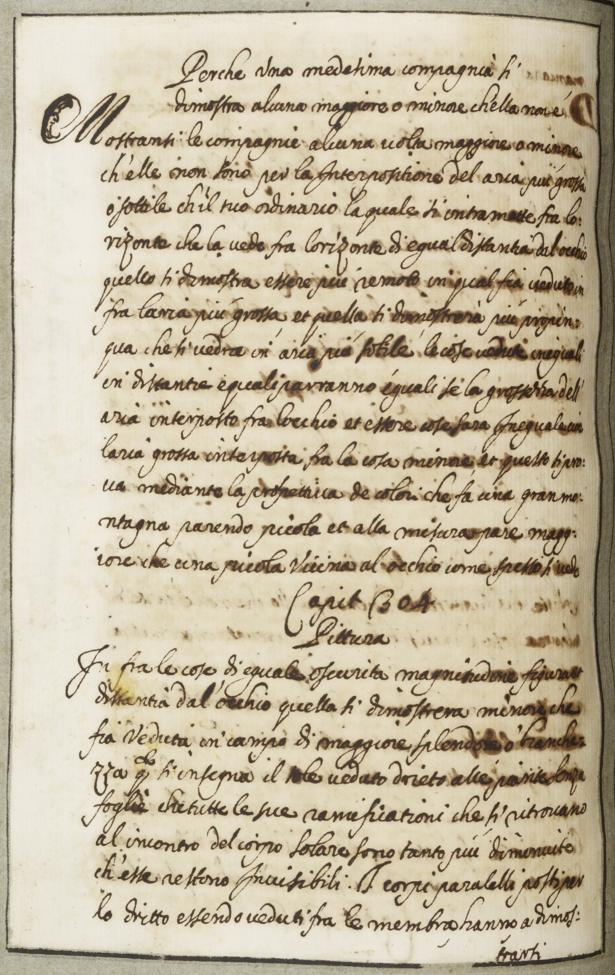 Perche una medesima compagnia si
dimostra alcuna maggiore o minore chella non é
Mostransi le compagnie alcuna uolta maggiore o minore
ch'elle non sono per la Interpositione del aria più grossa
o sottile ch'il suo ordinario la quale si intramette fra lo-
rizonte che la vede fra lorizonte di egual distantia dal'occhio
quello si dimostra essere più remoto in qual fia ueduto in
fra l'aria più grossa et quella si dimostrera più propin:
qua che si vedra in aria più sotile. le cose vedute ineguali
in distantie equali parranno eguali se la grossezza dell'
aria interposto fra l'occhio et essere cose sara Ineguale cioe
l'aria grossa interposta fra la cosa minore, et questo si pro:
ua mediante la prospettiua de colori che fà una gran mo:
ntagna parendo picola et alla misura pare magg:
iore che una picola Vicina al occhio come spesso si vede
Capit 304
Pittura
In fra le cose di eguale oscurita magnitudine figura et
distantia dal'occhio quella si dimostrera minore che
fia Veduta in campo di maggiore splendore o' bianche:
zza si insegna il sole ueduto drieto alle piante senza
foglie che tutte le sue ramificationi che si ritrouano
al incontro del corpo solare sono tanto più diminuite
ch'esse restono Inuisibili. I corpi paralelli posti per
lo dritto essendo ueduti fra le membra hanno a dimos:
trarsi